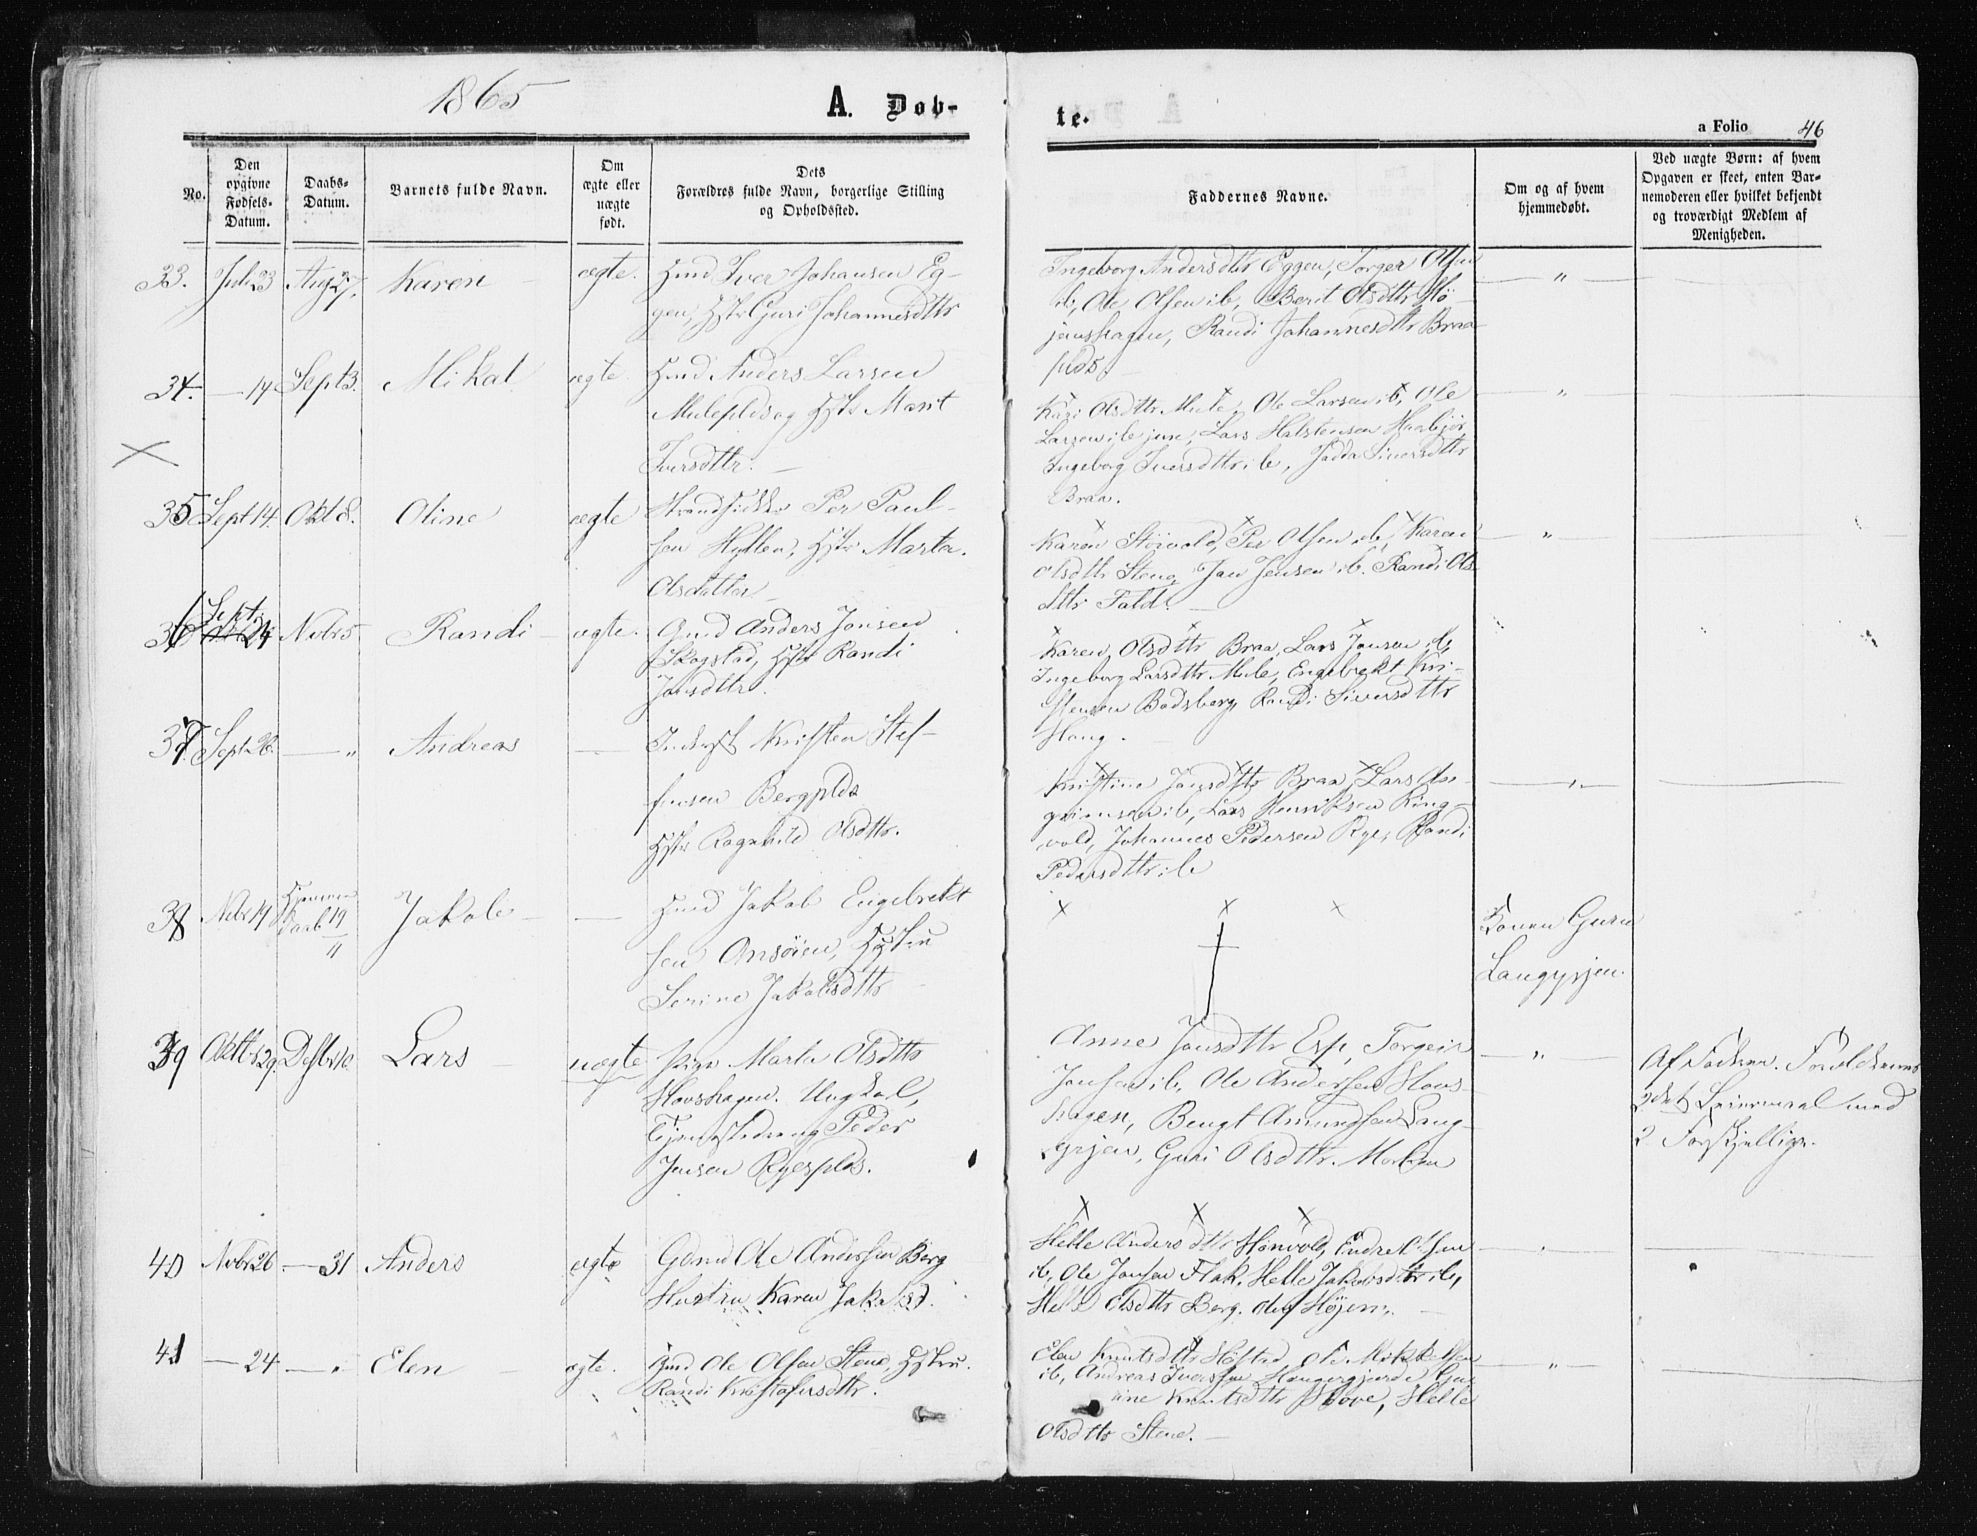 1865
A. Døb-
te.
a Folio 46
No.
Den opgivne Fødsels-Datum.
Daabs-Datum.
Barnets fulde Navn.
Om ægte eller uægte født.
Dets Forældres fulde Navn, borgerlige Stilling og Opholdssted.
Faddernes Navne.
Om og af hvem hjemmedøbt.
Ved uægte Børn: af hvem Opgaven er skeet, enten Barnemoderen eller hvilket bekjendt og troværdigt Medlem af Menigheden.
33. Juli 23 Aug 27. Karen ægte.
Iver Johansen Eg-
gen, Guri Johannesdttr
Ingeborg Andersdttr Eggen, Torger Olsen
ib, Ole Olsen ib, Berit Olsdttr Hø-
jemshagen, Randi Johannesdttr Braa
plds.
34. — 14 Sept 3. Mikal ægte
Anders Larsen
Muleplds og Marit
Iversdttr.
Kari Olsdttr Mule, Ole Larsen ib, Ole
Larsen ib jun, Lars Halstensen
Ingeborg Iversdttr ib, Siversdttr
Braa.
35 Sept 14. Okt 8. Oline ægte
Per Paul-
sen Hyllen, Marta
Olsdatter
Karen Støivold, Per Olsen ib, Karen
Olsdttr Steng, Jan Jensen ib. Randi Ols-
dttr Fald.
36 Sept. 24 Nvbr 5 Randi ægte.
Gmd Anders Jonsen
Skogstad, Randi
Jonsdttr.
Karen Olsdttr Braa, Lars Jonsen ib,
Ingeborg Larsdttr Mule, Engebrekt Kri-
stensen Bodsberg, Randi Siversdttr
Haug.
37. Sept. 26. — " Andreas —
Inderst Kristen Stef-
fensen Bergplds
Ragnhild Olsdttr.
Kristine Jonsdttr Braa, Lars
ib, Lars Henriksen Ring-
vold, Johannes Pedersen Rye, Randi
Pedersdttr ib
38 Nvbr 19 Hjemme
Daab 19
11
Jakob — —
Jakob Engebrekt
sen Onsøien,
Serine Jakobsdttr
Konen Guru
Langyrjen.
39 Oktbr 29. Desbr 10. Lars uægte
Pige Marta Olsdttr
Hovshagen. Ungkal,
Tjenestedreng Peder
Jensen Ryesplds.
Anne Jonsdttr Esp, Torgeir
Jonsen ib, Ole Andersen Hovs-
hagen, Bengt Amundsen Lang-
yrjen, Guri Olsdttr.
Af Faderen. Forældrenes
2det Leiermaal med
2 Forskjellige.
40 Nvbr 26 — 31 Anders ægte
Gdmd Ole Andersen Berg
Hustru Karen Jakobsd.
Helle Andersdttr Hønvold, Endre Olsen
ib, Ole Jonsen Flak, Helle Jakobsdttr ib,
Olsdttr Berg.
41 — 24 — " Elen ægte.
Ole Olsen Stene,
Randi Kristofersdttr.
Elen Knutsdttr Høstad, Ole Mikkelsen
ib, Andreas Iversen
Knutsdttr Hove, Helle
Olsdttr Stene.